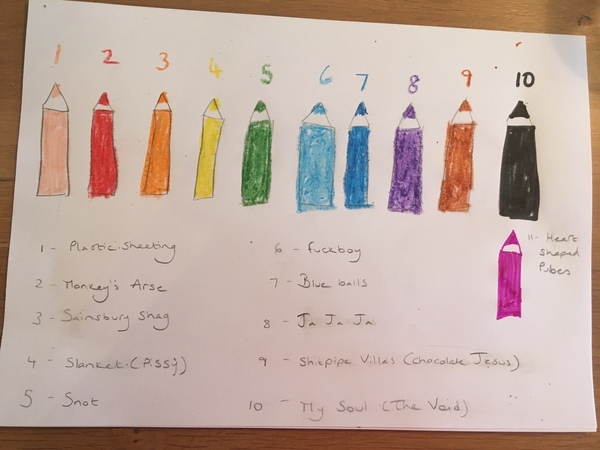 1 2 3 4 5 6 7 8 9 10
1 - Plastic sheeting
2 - Monkey's Arse
3 - Sainsbury Shag
4 - Slanket (Pissy)
5 - Snot
6 - fuckboy
7 - Blue balls
8 - Ja Ja Ja
9 - Shitpipe Villas (chocolate Jesus)
10 - My Soul (The Void)
11- Heart
shaped
Pubes